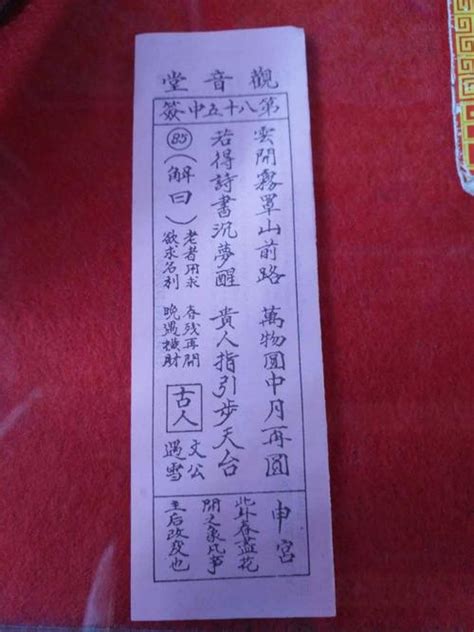 觀音堂
第八十五中簽
雲開霧罩山前路 萬物圓中月再圓
若得詩書沉夢醒 貴人指引步天台
85
(解曰)
老者用求 春残再開
欲求名利 晚遇横財
古人
文公
遇雪
申宮
此卦春盡花
開之象凡事
主后改變也